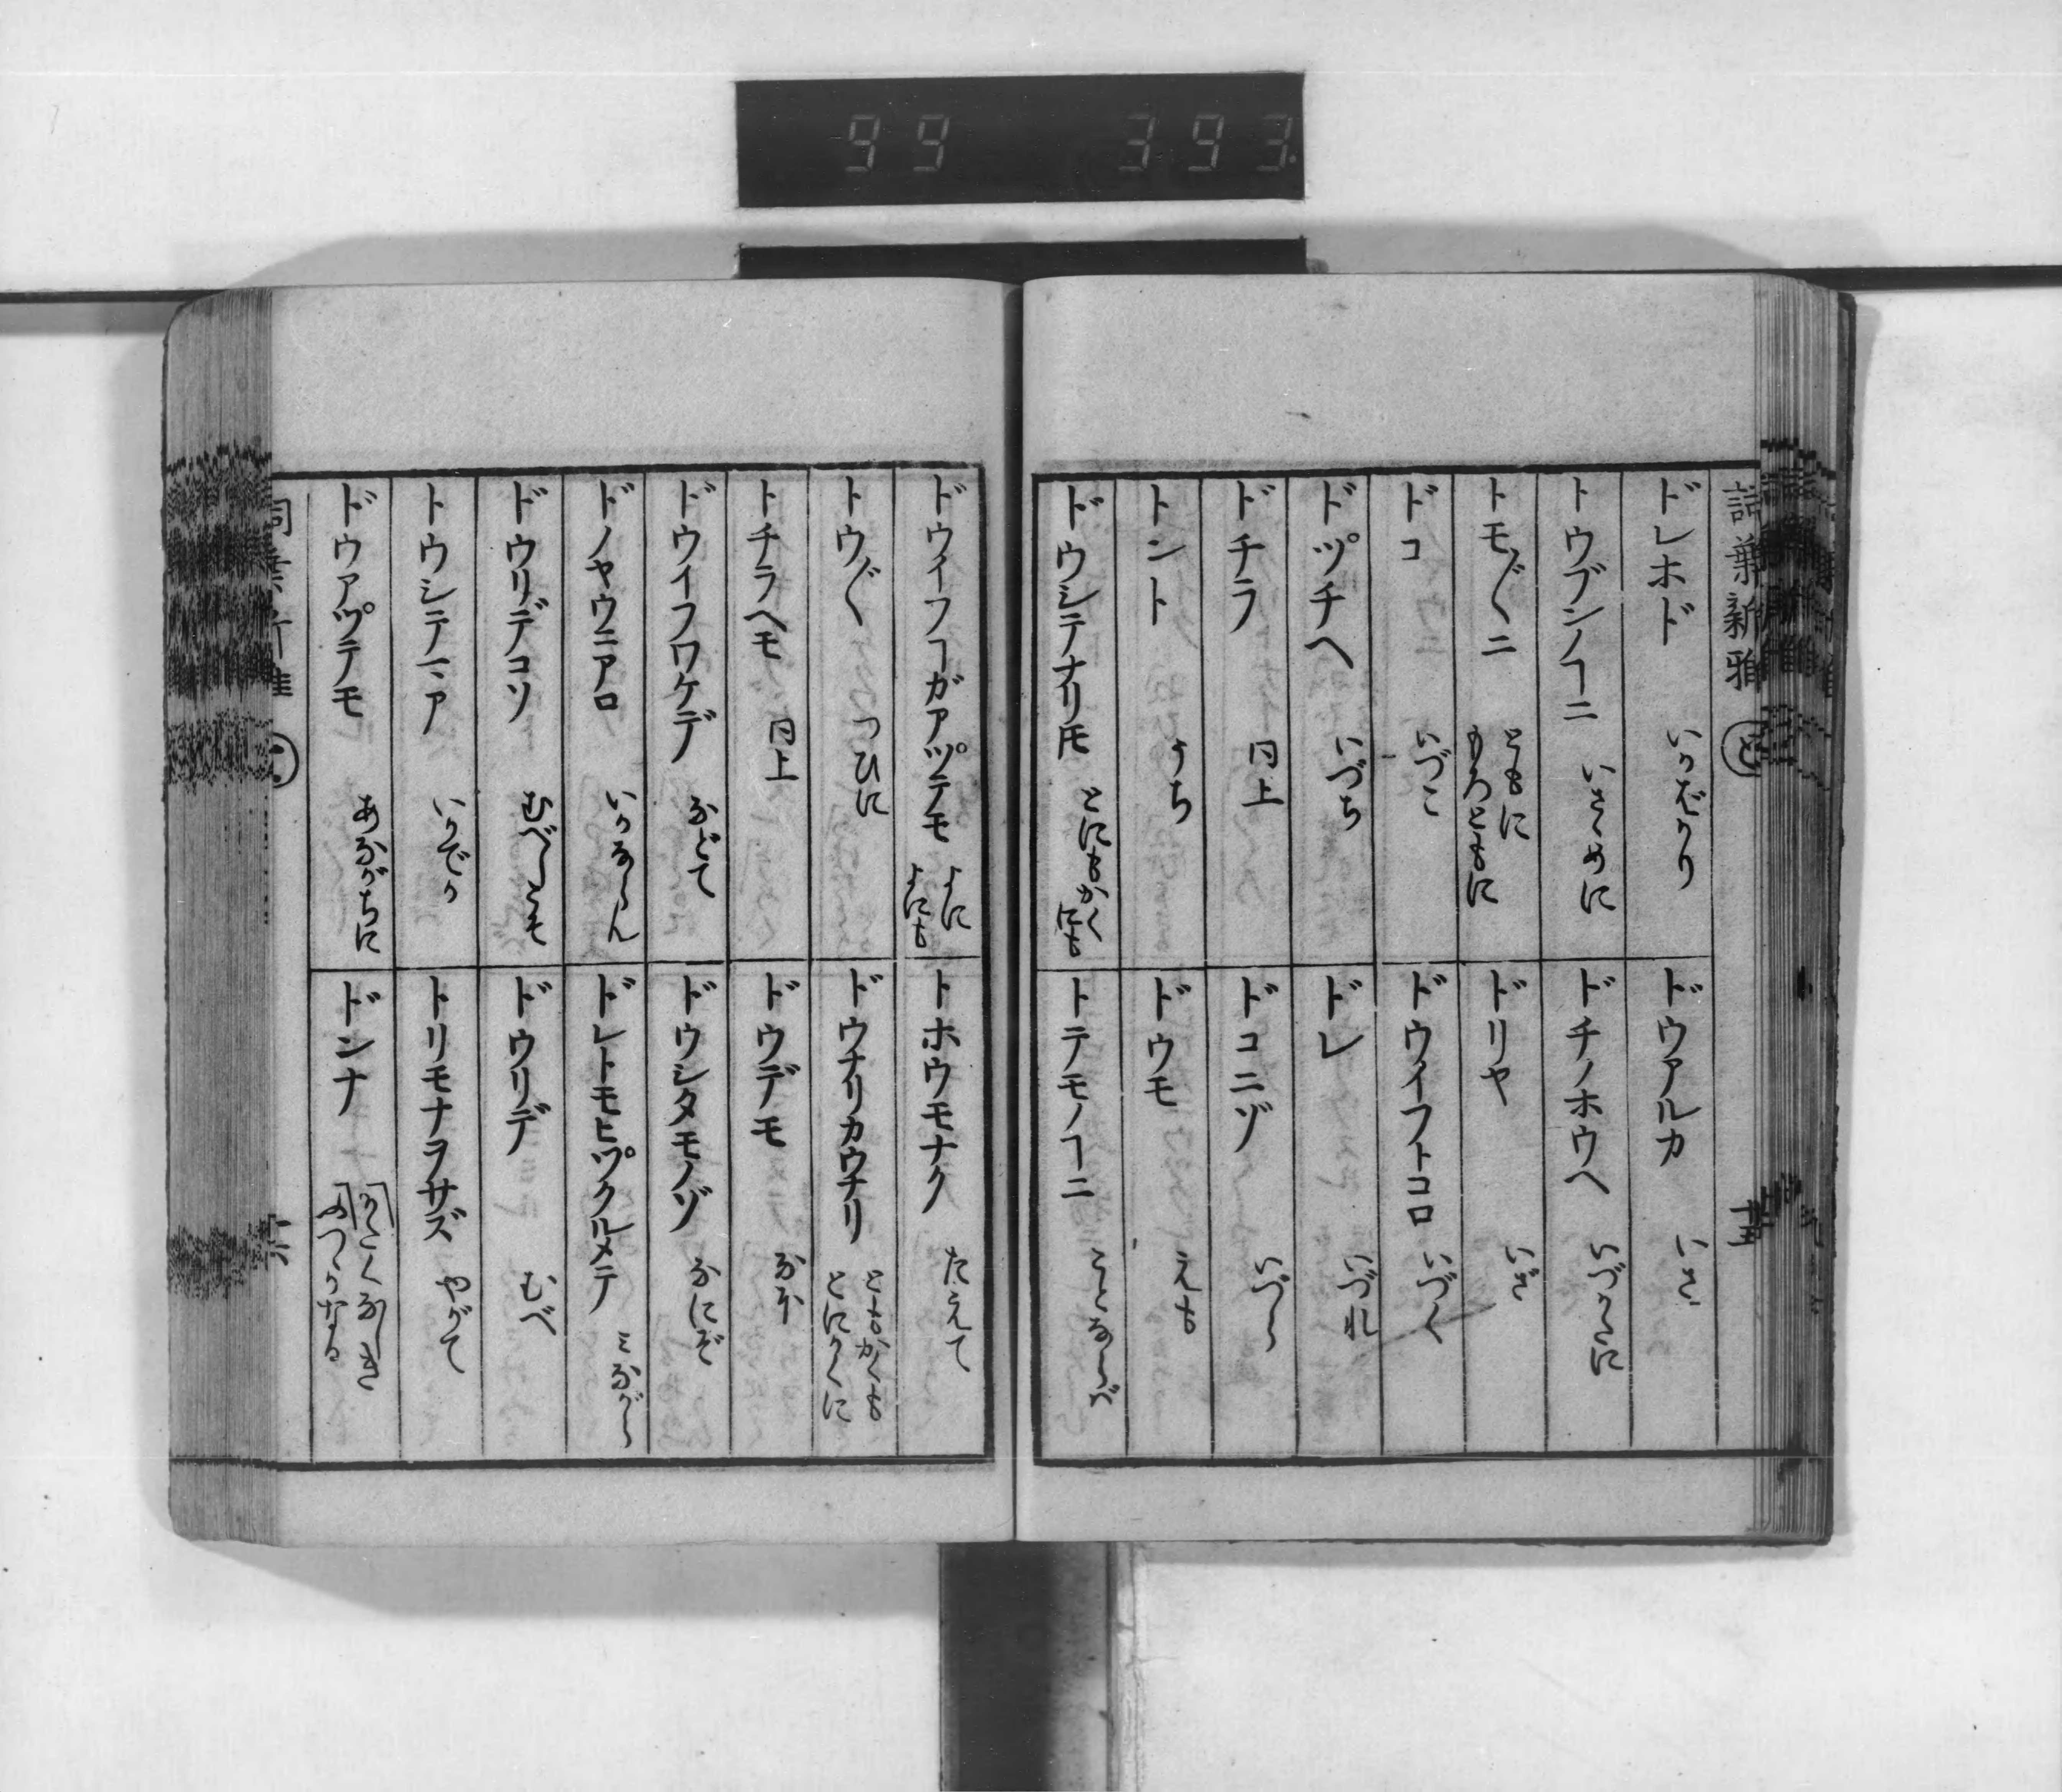 99 393
詞葉新雅 と 十五
ドレホド いかばかり
トウブンノヿニ いさゝめに
トモ〴〵ニ ともに もろともに
ドコ いづこ
ドヅチヘ いづち
ドチラ 同上
トント うち
ドウシテナリ𪜈 とにもかくにも
ドウアルカ いさ
ドチノホウヘ いづかたに
ドリヤ いざ
ドウイフトコロ いづく
ドレ いづれ
ドコニゾ いづら
ドウモ えも
トテモノヿニ ことならば
ドウイフヿガアツテモ よに よにも
トウ〴〵 つひに
トチラヘモ 同上
ドウイフワケデ などて
ドノヤウニアロ いかならん
ドウリデコソ むべしこそ
トウシテマア いかでか
ドウアツテモ あながちに
トホウモナク たえて
ドウナリカウナリ ともかくも とにかくに
ドウデモ なほ
ドウシタモノゾ なにぞ
ドレトモヒツクルメテ みながら
ドウリデ むべ
トリモナヲサズ やがて
ドンナ
詞葉新雅